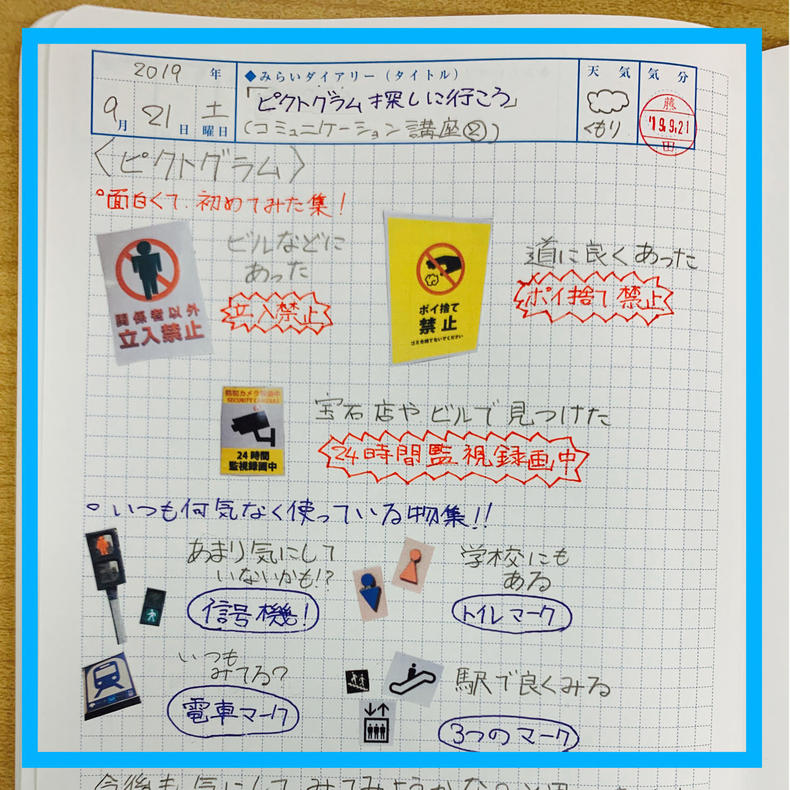 2019 年
9月 21日 土曜日
◆みらいダイアリー(タイトル)
「ピクトグラム探しに行ころ」
(コミュニケーション講座②)
天気
くもり
気分
藤
'19.9.21
田
〈ピクトグラム〉
°面白くて、初めてみた集!
関係者以外
立入禁止
ビルなどに
あった
立入禁止
ポイ捨て
禁止
ゴミを捨てないでください
道に良くあった
ポイ捨て禁止
防犯カメラ作動中
SECURITY CAMERAS
24時間
監視録画中
宝石店やビルで見つけた
24時間監視録画中
°いつも何気なく使っている物集!!
あまり気にして
いないかも!?
信号機!
学校にも
ある
トイレマーク
いつも
みてる?
電車マーク
駅で良くみる
3つのマーク
今後も気にしてみてみようかな